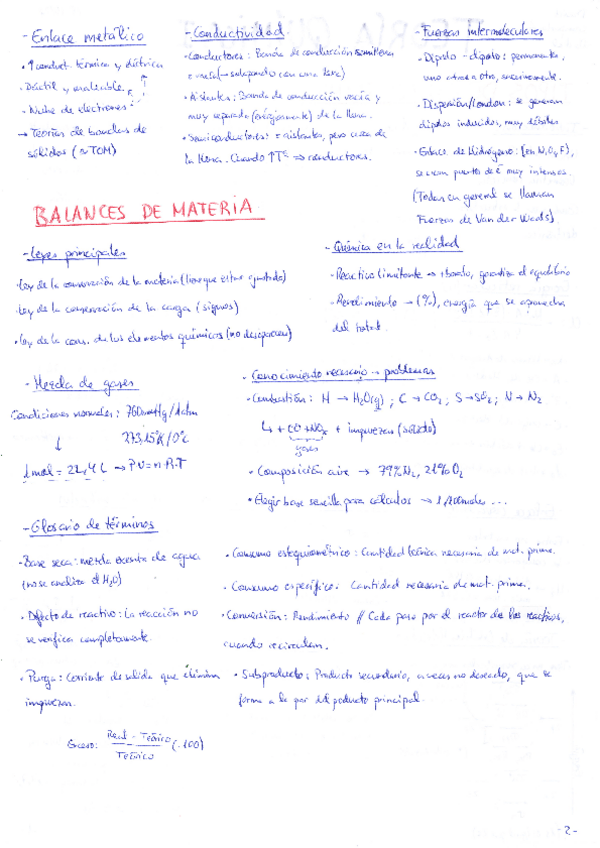 - Enlace metálico
· ↑ conduct. térmica y eléctrica
· Dúctil y maleable.
· Nube de electrones
→ Teorías de bandas de
sólidos (≈ TOM)
- Conductividad
· Conductores: Banda de conducción semillena
· Aislantes: Banda de conducción vacía y
muy separada (energéticamente) de la llena.
· Semiconductores: = aislantes, pero cerca de
la llena. Cuando ↑Tª ⇒ conductores.
- Fuerzas intermoleculares
· Dipolo - dipolo: permanente,
uno atrae a otro,
· Dispersión/London: se generan
dipolos inducidos, muy débiles.
· Enlace de Hidrógeno: (en N, O y F),
se crean puentes de é muy intensos.
(Todas en general se llaman
Fuerzas de Van der Waals)
BALANCES DE MATERIA
- Leyes principales
· Ley de la conservación de la materia (tiene que estar ajustada)
· Ley de la conservación de la carga (signos)
· Ley de la cons. de los elementos químicos (no desaparecen)
- Química en la realidad
· Reactivo limitante → garantiza el equilibrio
· Rendimiento → (%), energía que se aprovecha
del total.
- Mezcla de gases
Condiciones normales: 760mmHg/1atm
273,15ºK/0ºC
↓
1 mol = 22,4 L → PV = n·R·T
- Conocimiento necesario → problemas
· Combustión: H → H₂O(g) ; C → CO₂ ; S → SO₂ ; N → N₂
↳ + CO + NOx + impurezas (sólido)
gases
· Composición aire → 79% N₂, 21% O₂
· Elegir base sencilla para cálculos → 1, 100 moles ...
- Glosario de términos
· Base seca: mezcla exenta de agua
(no se analiza el H₂O)
· Defecto de reactivo: La reacción no
se verifica completamente.
· Purga: Corriente de salida que elimina
impurezas.
Exceso: Real - Teórico / Teórico (·100)
· Consumo estequiométrico: Cantidad teórica necesaria de mat. prima.
· Consumo específico: Cantidad necesaria de mat. prima.
· Conversión: Rendimiento // Cada paso por el reactor de los reactivos,
cuando recirculan.
· Subproducto: Producto secundario, a veces no deseado, que se
forma a la par del producto principal.
-2-